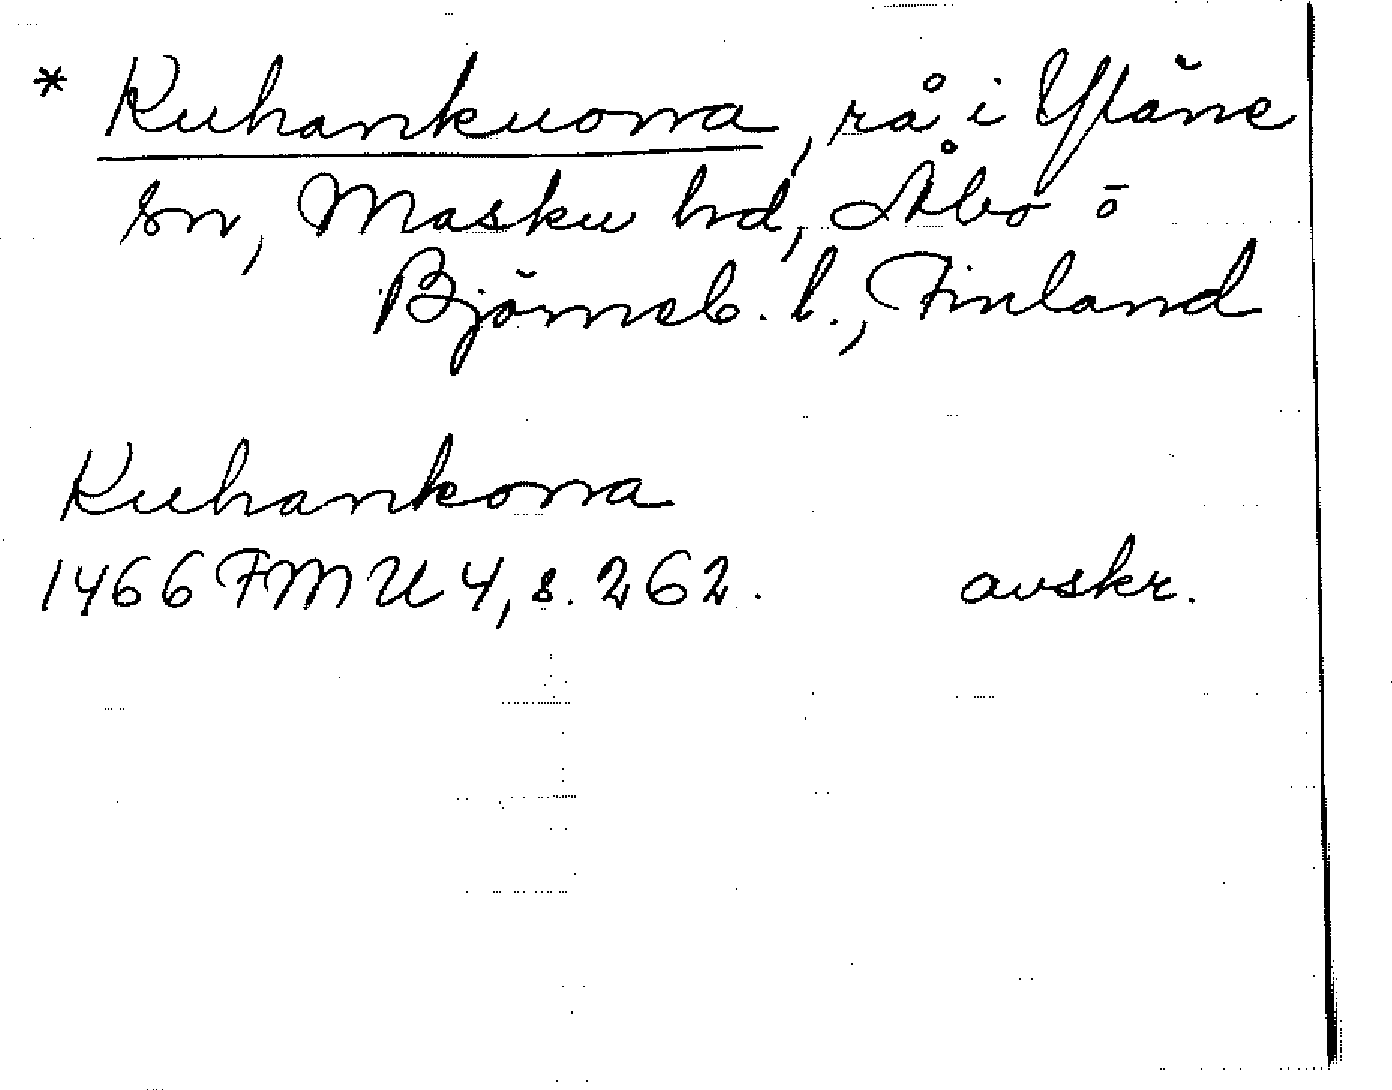 * Kuhankuona, rå i Yläne
sn, Masku hd, Åbo o
Björneb. l., Finland
Kuhankona
1466 FMU 4, s. 262. avskr.